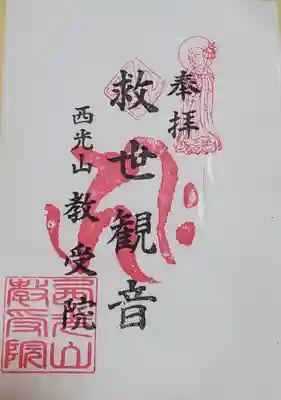 奉拝
救世観音
西光山教受院
西光山
教受院